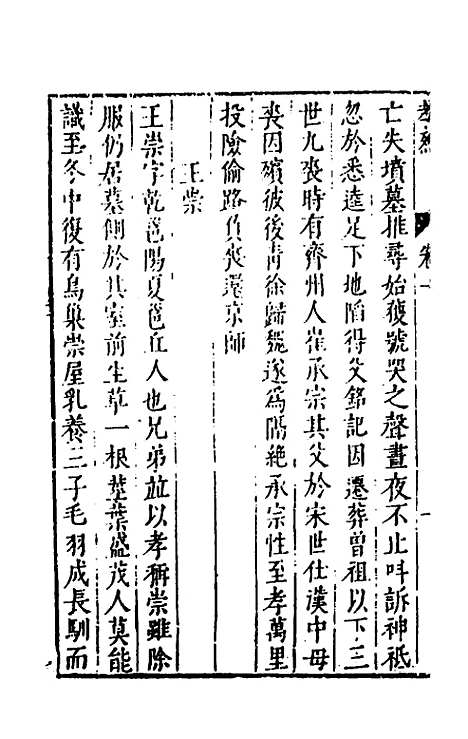 亡失墳墓推尋始獲號哭之聲晝夜不止叫訴神祗
忽於悉達足下地陷得父銘記因遷葬曾祖以下三
世九喪時有齊州人崔承宗其父於宋世仕漢中母
喪因殯彼後青徐歸魏遂為隔絶承宗性至孝萬里
投險偷路負喪還京師
王崇
王崇字乾邕陽夏邕丘人也兄弟竝以孝稱崇雖除
服仍居墓側於其室前生草一根莖葉盛茂人莫能
識至冬中復有鳥巢崇屋乳養三子毛羽成長馴而